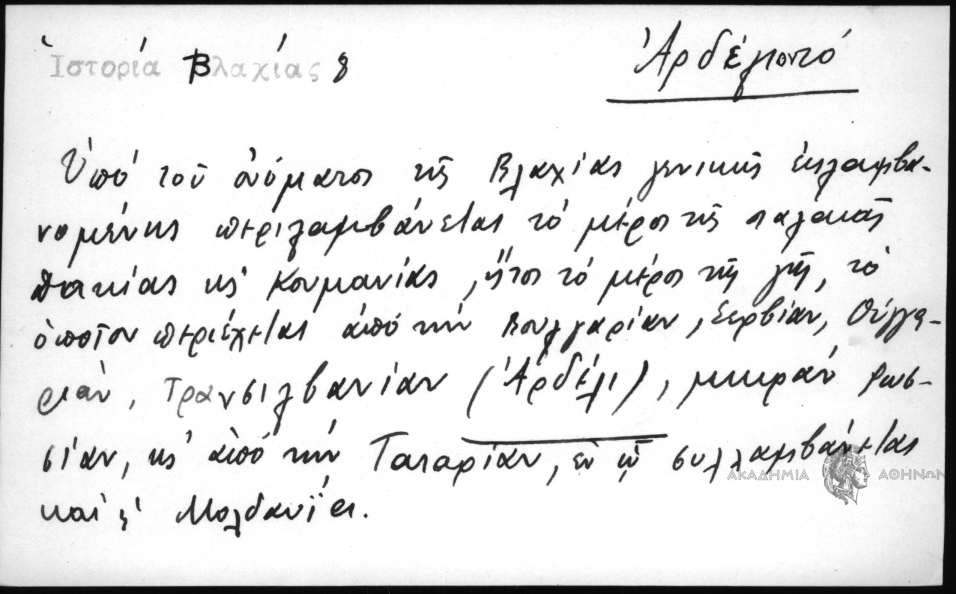 Ἱστορία Βλαχίας 8
Ἀρδέλι
Ὑπό τοῦ ὀνόματος τῆς Βλαχίας γενικῆς ἐκλαμβα-
νομένης περιλαμβάνεται τό μέρος τῆς παλαιᾶς
Δακίας κ Κουμανίας, ἤτοι τό μέρος τῆς γῆς, τό
ὁποῖον περιέχεται ἀπό τήν Βουλγαρίαν, Σερβίαν, Οὐγγα-
ρίαν, Τρανσιλβανίαν (Ἀρδέλι), μικράν Ρωσ-
σίαν, κ ἀπό τήν Ταταρίαν, ἐν ᾧ συλλαμβάνεται
καί ἡ Μολδαυΐα.
ΑΚΑΔΗΜΙΑ ΑΘΗΝΩΝ